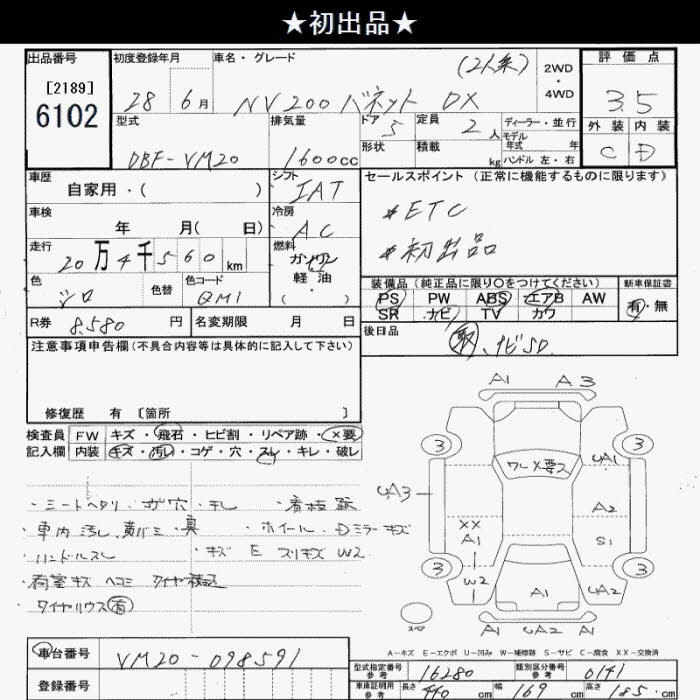 ★初出品★
出品番号
[2189]
6102
初度登録年月
28年 6月
車名・グレード
(2人乗)
NV200 バネット DX
2WD
・
4WD
評価点
3.5
外装 内装
C D
型式
DBF-VM20
排気量
1600cc
ドア
5
形状
定員
2人
積載
kg
ディーラー・並行
モデル年式 年
ハンドル 左・右
車歴
自家用・( )
シフト
IAT
セールスポイント (正常に機能するものに限ります)
*ETC
*初出品
車検
年 月( 日)
冷房
AC
走行
20万4千560km
燃料
ガソリン
軽・油
( ・ )
色
シロ
色替
色コード
QM1
装備品 (純正品に限り○をつけてください)
PS PW ABS エアB AW
SR ナビ TV カワ
新車保証書
有・無
R券
8,580円
名変期限 月 日
後日品
取、ナビSD
注意事項申告欄(不具合内容等は具体的に記入して下さい)
修復歴 有 [箇所 ]
検査員
記入欄
FW キズ・飛石・ヒビ割・リペア跡・×要
内装 キズ・汚レ・コゲ・穴・スレ・キレ・破レ
・シートヘタリ
・車内汚レ
・ハンドルスレ
・荷室キズ ヘコミ
・タイヤハウス 有
・ホイール・Dミラーキズ
・キズ E スリキズ W2
A1 A3
3 3
UA1
UA3
A2
XX
A1
S1
3 3
W2
A1
UA2
A1 UA2 A1
スペア
A-キズ E-エクボ U-凹み W-補修跡 S-サビ C-腐食 XX-交換済
車台番号
VM20-098591
登録番号
型式指定番号
参考
16280
類別区分番号
参考
0141
車庫証明用
参考
長さ 440cm
幅 169cm
高さ 185cm